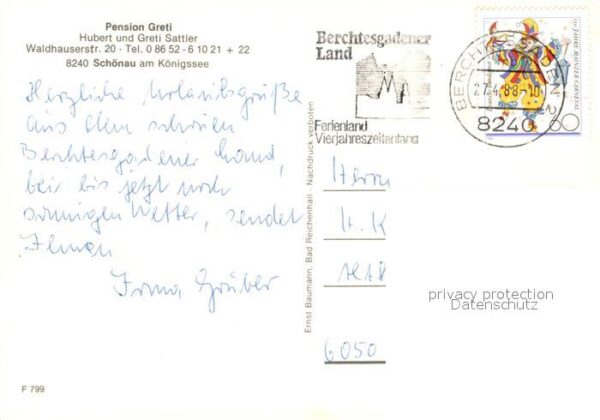 Pension Greti
Hubert und Greti Sattler
Waldhauserstr. 20 - Tel. 0 86 52 - 6 10 21 + 22
8240 Schönau am Königssee
Herzliche Urlaubsgrüße
aus dem schönen
Berchtesgadener Land,
bei bis jetzt noch
sonnigen Wetter, sendet
Ihnen
Irma Gruber
F 799
Ernst Baumann, Bad Reichenhall - Nachdruck verboten
Berchtesgadener
Land
Ferienland
Vierjahreszeitenlang
BERCHTESGADEN
27.4.88-10
8240
60
Herrn
H. K
6050
privacy protection
Datenschutz